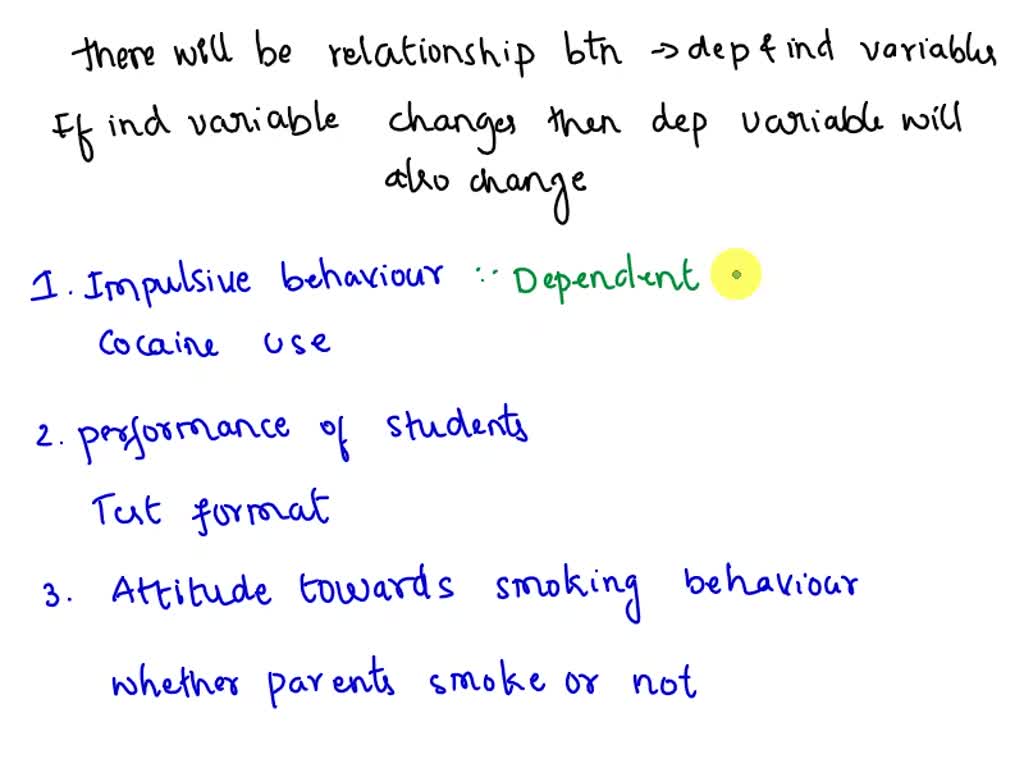 there will be relationship btn → dep & ind variables
If ind variable changes then dep variable will
also change
1. Impulsive behaviour :- Dependent
Cocaine use
2. performance of students
Test format
3. Attitude towards smoking behaviour
whether parents smoke or not